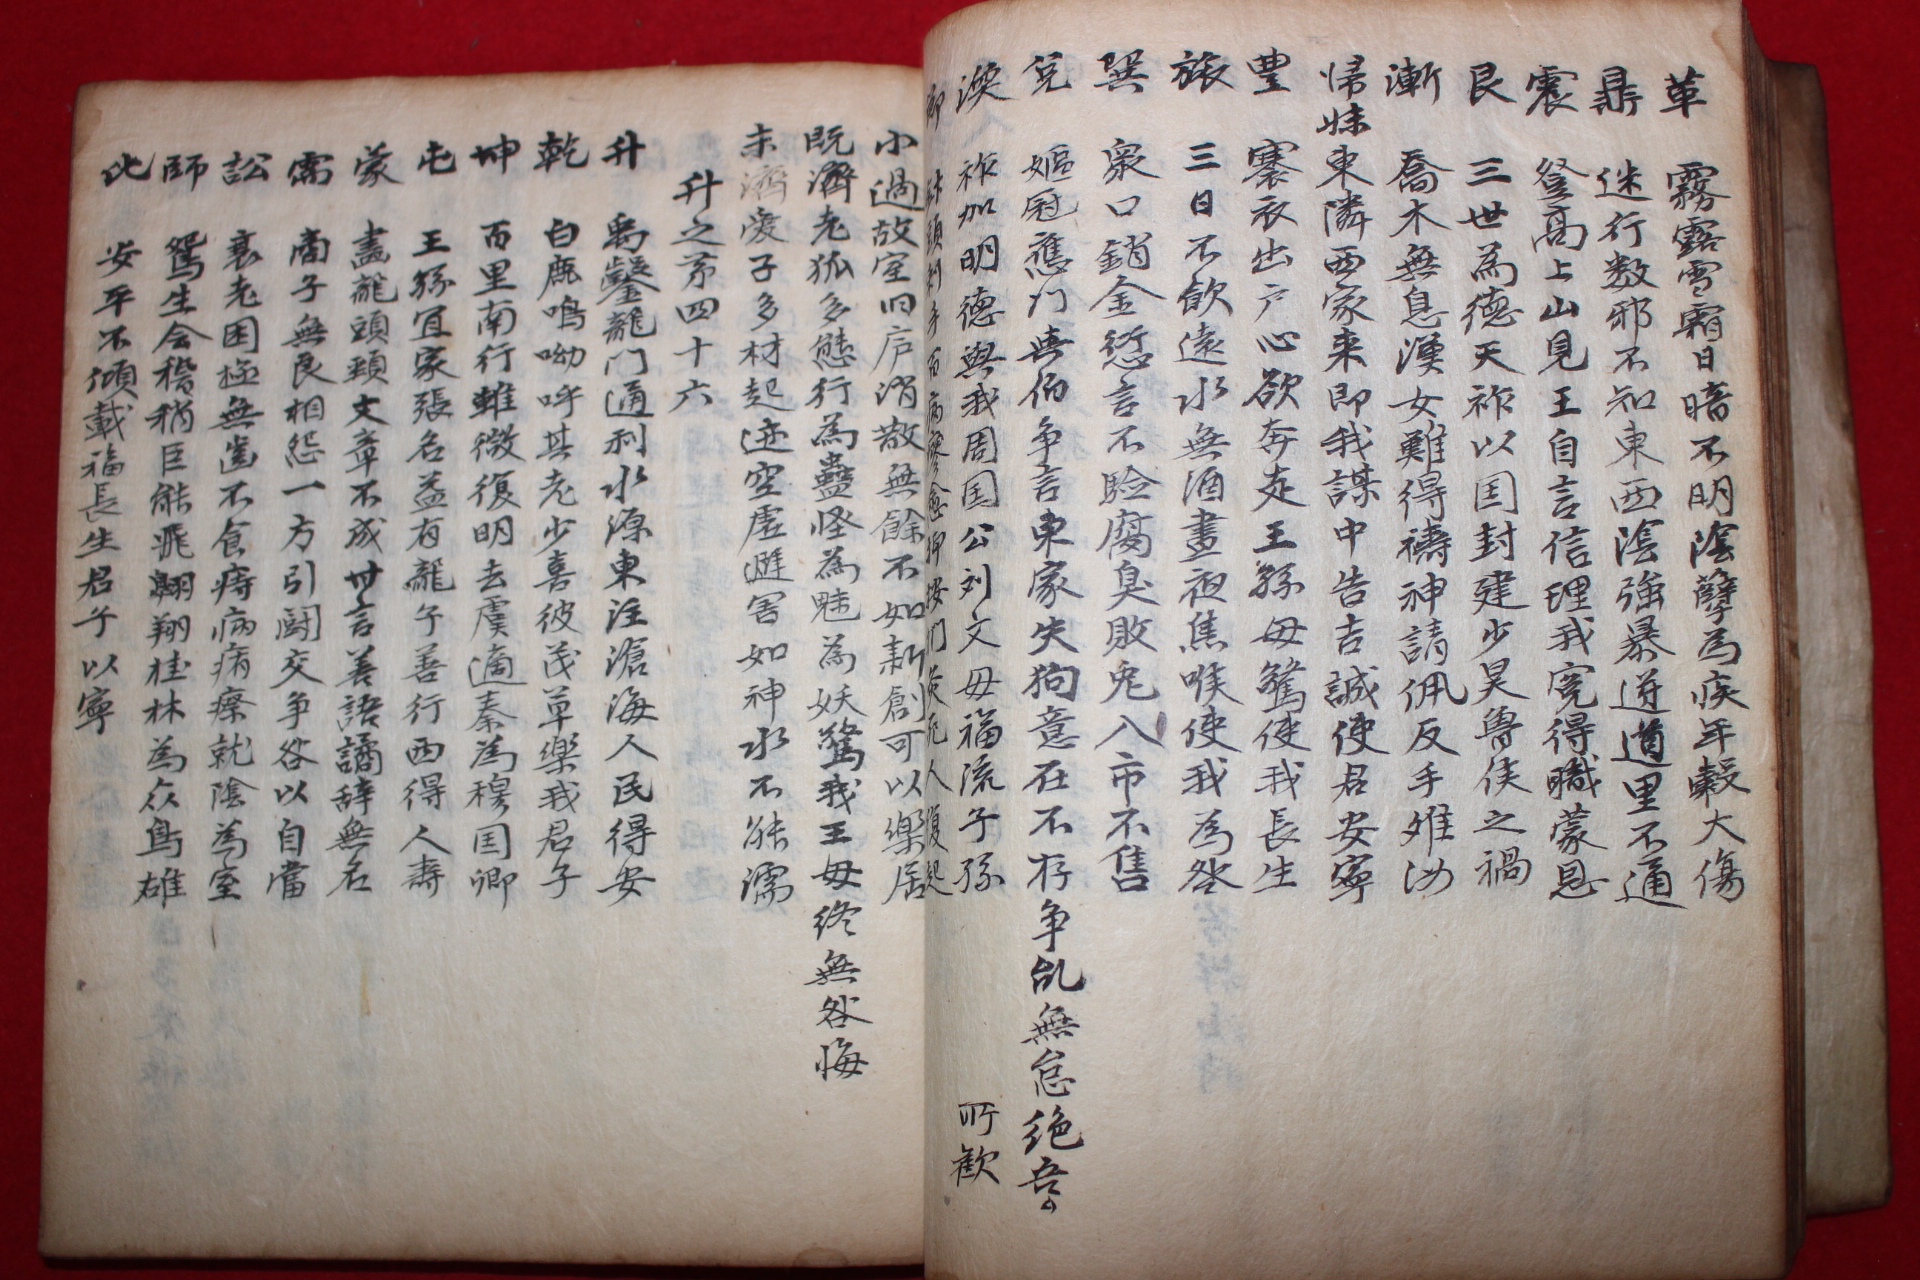 革 霧露雪霜日暗不明陰孽為疾年穀大傷
鼎 迷行数邪不知東西陰強暴逆道里不通
震 登高上山見王自言信理我寃得職蒙恩
艮 三世為德天祚以国封建少昊魯侯之禍
漸 喬木無息漢女難得禱神請佩反手難汝
帰妹 東隣西家来即我謀中告吉誠使君安寧
豊 褰衣出戸心欲奔走王孫母驚使我長生
旅 三日不飲遠水無酒晝夜焦喉使我為咎
巽 衆口銷金愆言不驗腐臭敗兎入市不售
兌 嫗冠應門与伯争言東家失狗意在不存争乱無怠絶吾
渙 祚加明德與我周国公刘文母福流子孫 所歓
小過 故室旧庐消散無餘不如新創可以樂居
既濟 老狐多態行為蠱怪為魅為妖驚我王母終無咎悔
未濟 愛子多材起迹空虚避害如神水不能濡
升之苐四十六
升 禹鑿龍門通利水源東注滄海人民得安
乾 白鹿鳴呦呼其老少喜彼茂草樂我君子
坤 百里南行雖微復明去虞適秦為穆国卿
屯 王孫宜家張名益有龍子善行西得人壽
蒙 畫龍頭頸文章不成甘言善語譎辞無名
需 商子無良相怨一方引鬪交争咎以自當
訟 衰老困極無齒不食痔病痟瘵就陰為室
師 鴛生会稽稍巨能飛翺翔桂林為众鳥雄
比 安平不傾載福長生君子以寧